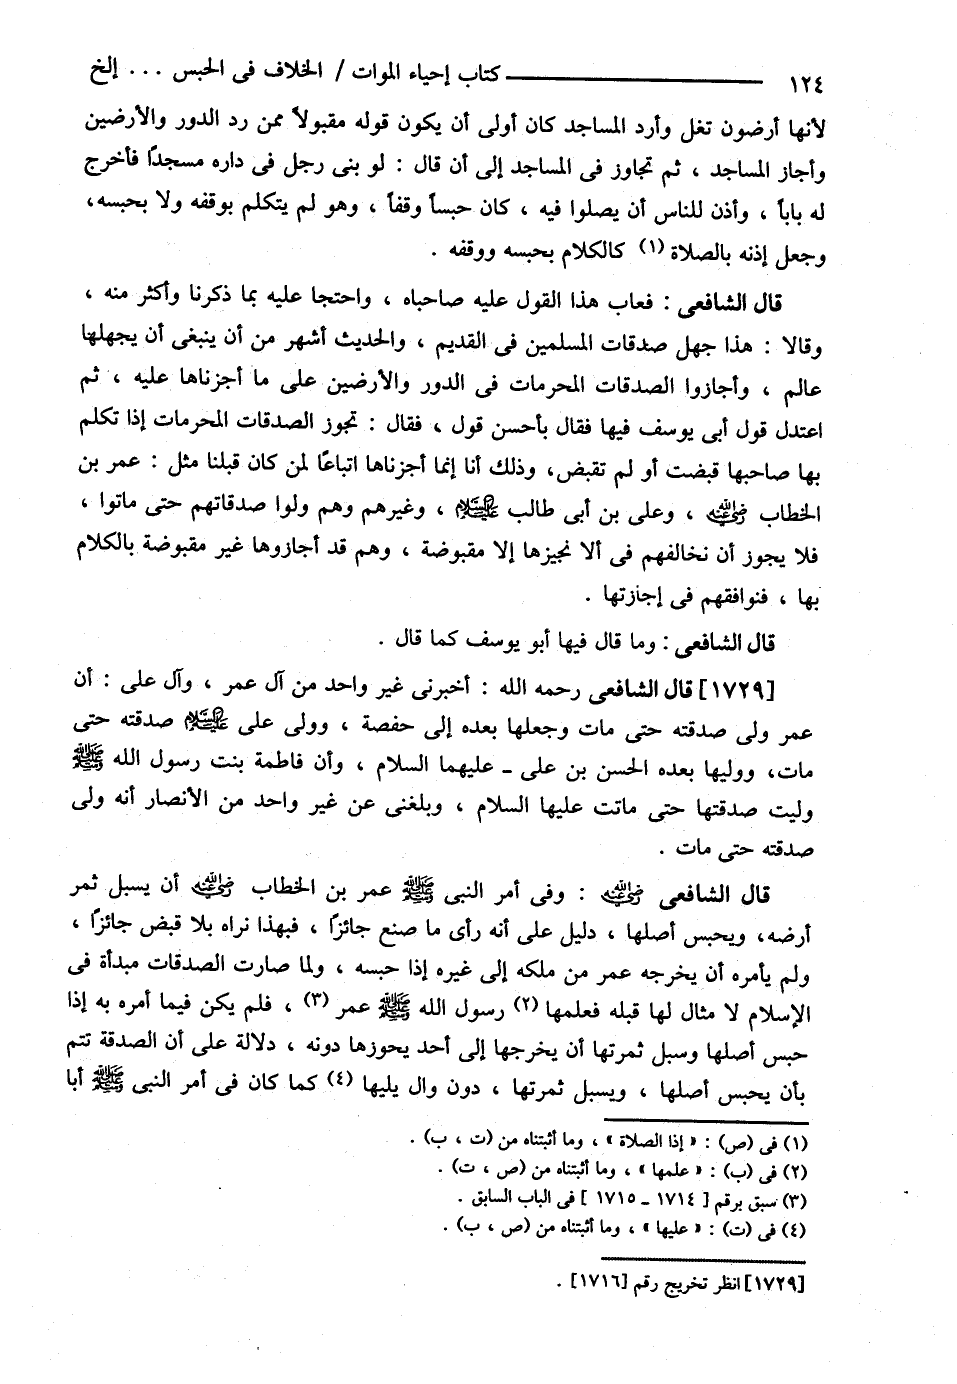 ١٢٤ ـــــــــــ كتاب إحياء الموات / الخلاف فى الحبس ... إلخ
لأنها أرضون تغل وأرد المساجد كان أولى أن يكون قوله مقبولاً ممن رد الدور والأرضين
وأجاز المساجد ، ثم تجاوز فى المساجد إلى أن قال : لو بنى رجل فى داره مسجدًا فأخرج
له باباً ، وأذن للناس أن يصلوا فيه ، كان حبساً وقفاً ، وهو لم يتكلم بوقفه ولا بحبسه،
وجعل إذنه بالصلاة (١) كالكلام بحبسه ووقفه .
قال الشافعى : فعاب هذا القول عليه صاحباه ، واحتجا عليه بما ذكرنا وأكثر منه ،
وقالا : هذا جهل صدقات المسلمين فى القديم ، والحديث أشهر من أن ينبغى أن يجهلها
عالم ، وأجازوا الصدقات المحرمات فى الدور والأرضين على ما أجزناها عليه ، ثم
اعتدل قول أبى يوسف فيها فقال بأحسن قول ، فقال : تجوز الصدقات المحرمات إذا تكلم
بها صاحبها قبضت أو لم تقبض، وذلك أنا إنما أجزناها اتباعًا لمن كان قبلنا مثل : عمر بن
الخطاب رضي الله عنه ، وعلى بن أبى طالب عليه السلام ، وغيرهم وهم ولوا صدقاتهم حتى ماتوا ،
فلا يجوز أن نخالفهم فى ألا نجيزها إلا مقبوضة ، وهم قد أجازوها غير مقبوضة بالكلام
بها ، فنوافقهم فى إجازتها .
قال الشافعى : وما قال فيها أبو يوسف كما قال .
[١٧٢٩] قال الشافعى رحمه الله : أخبرنى غير واحد من آل عمر ، وآل على : أن
عمر ولى صدقته حتى مات وجعلها بعده إلى حفصة ، وولى على عليه السلام صدقته حتى
مات، ووليها بعده الحسن بن على ـ عليهما السلام ، وأن فاطمة بنت رسول الله ﷺ
وليت صدقتها حتى ماتت عليها السلام ، وبلغنى عن غير واحد من الأنصار أنه ولى
صدقته حتى مات .
قال الشافعى رضي الله عنه : وفى أمر النبى ﷺ عمر بن الخطاب رضي الله عنه أن يسبل ثمر
أرضه، ويحبس أصلها ، دليل على أنه رأى ما صنع جائزًا ، فبهذا نراه بلا قبض جائزًا ،
ولم يأمره أن يخرجه عمر من ملكه إلى غيره إذا حبسه ، ولما صارت الصدقات مبدأة فى
الإسلام لا مثال لها قبله فعلمها (٢) رسول الله ﷺ عمر (٣) ، فلم يكن فيما أمره به إذا
حبس أصلها وسبل ثمرتها أن يخرجها إلى أحد يحوزها دونه ، دلالة على أن الصدقة تتم
بأن يحبس أصلها ، ويسبل ثمرتها ، دون وال يليها (٤) كما كان فى أمر النبى ﷺ أبا
(١) فى (ص) : « إذا الصلاة » ، وما أثبتناه من (ت ، ب) .
(٢) فى (ب) : « علمها » ، وما أثبتناه من (ص ، ت) .
(٣) سبق برقم [ ١٧١٤ ـ ١٧١٥ ] فى الباب السابق .
(٤) فى (ت) : « عليها » ، وما أثبتناه من (ص ، ب) .
[١٧٢٩] انظر تخريج رقم [١٧١٦] .